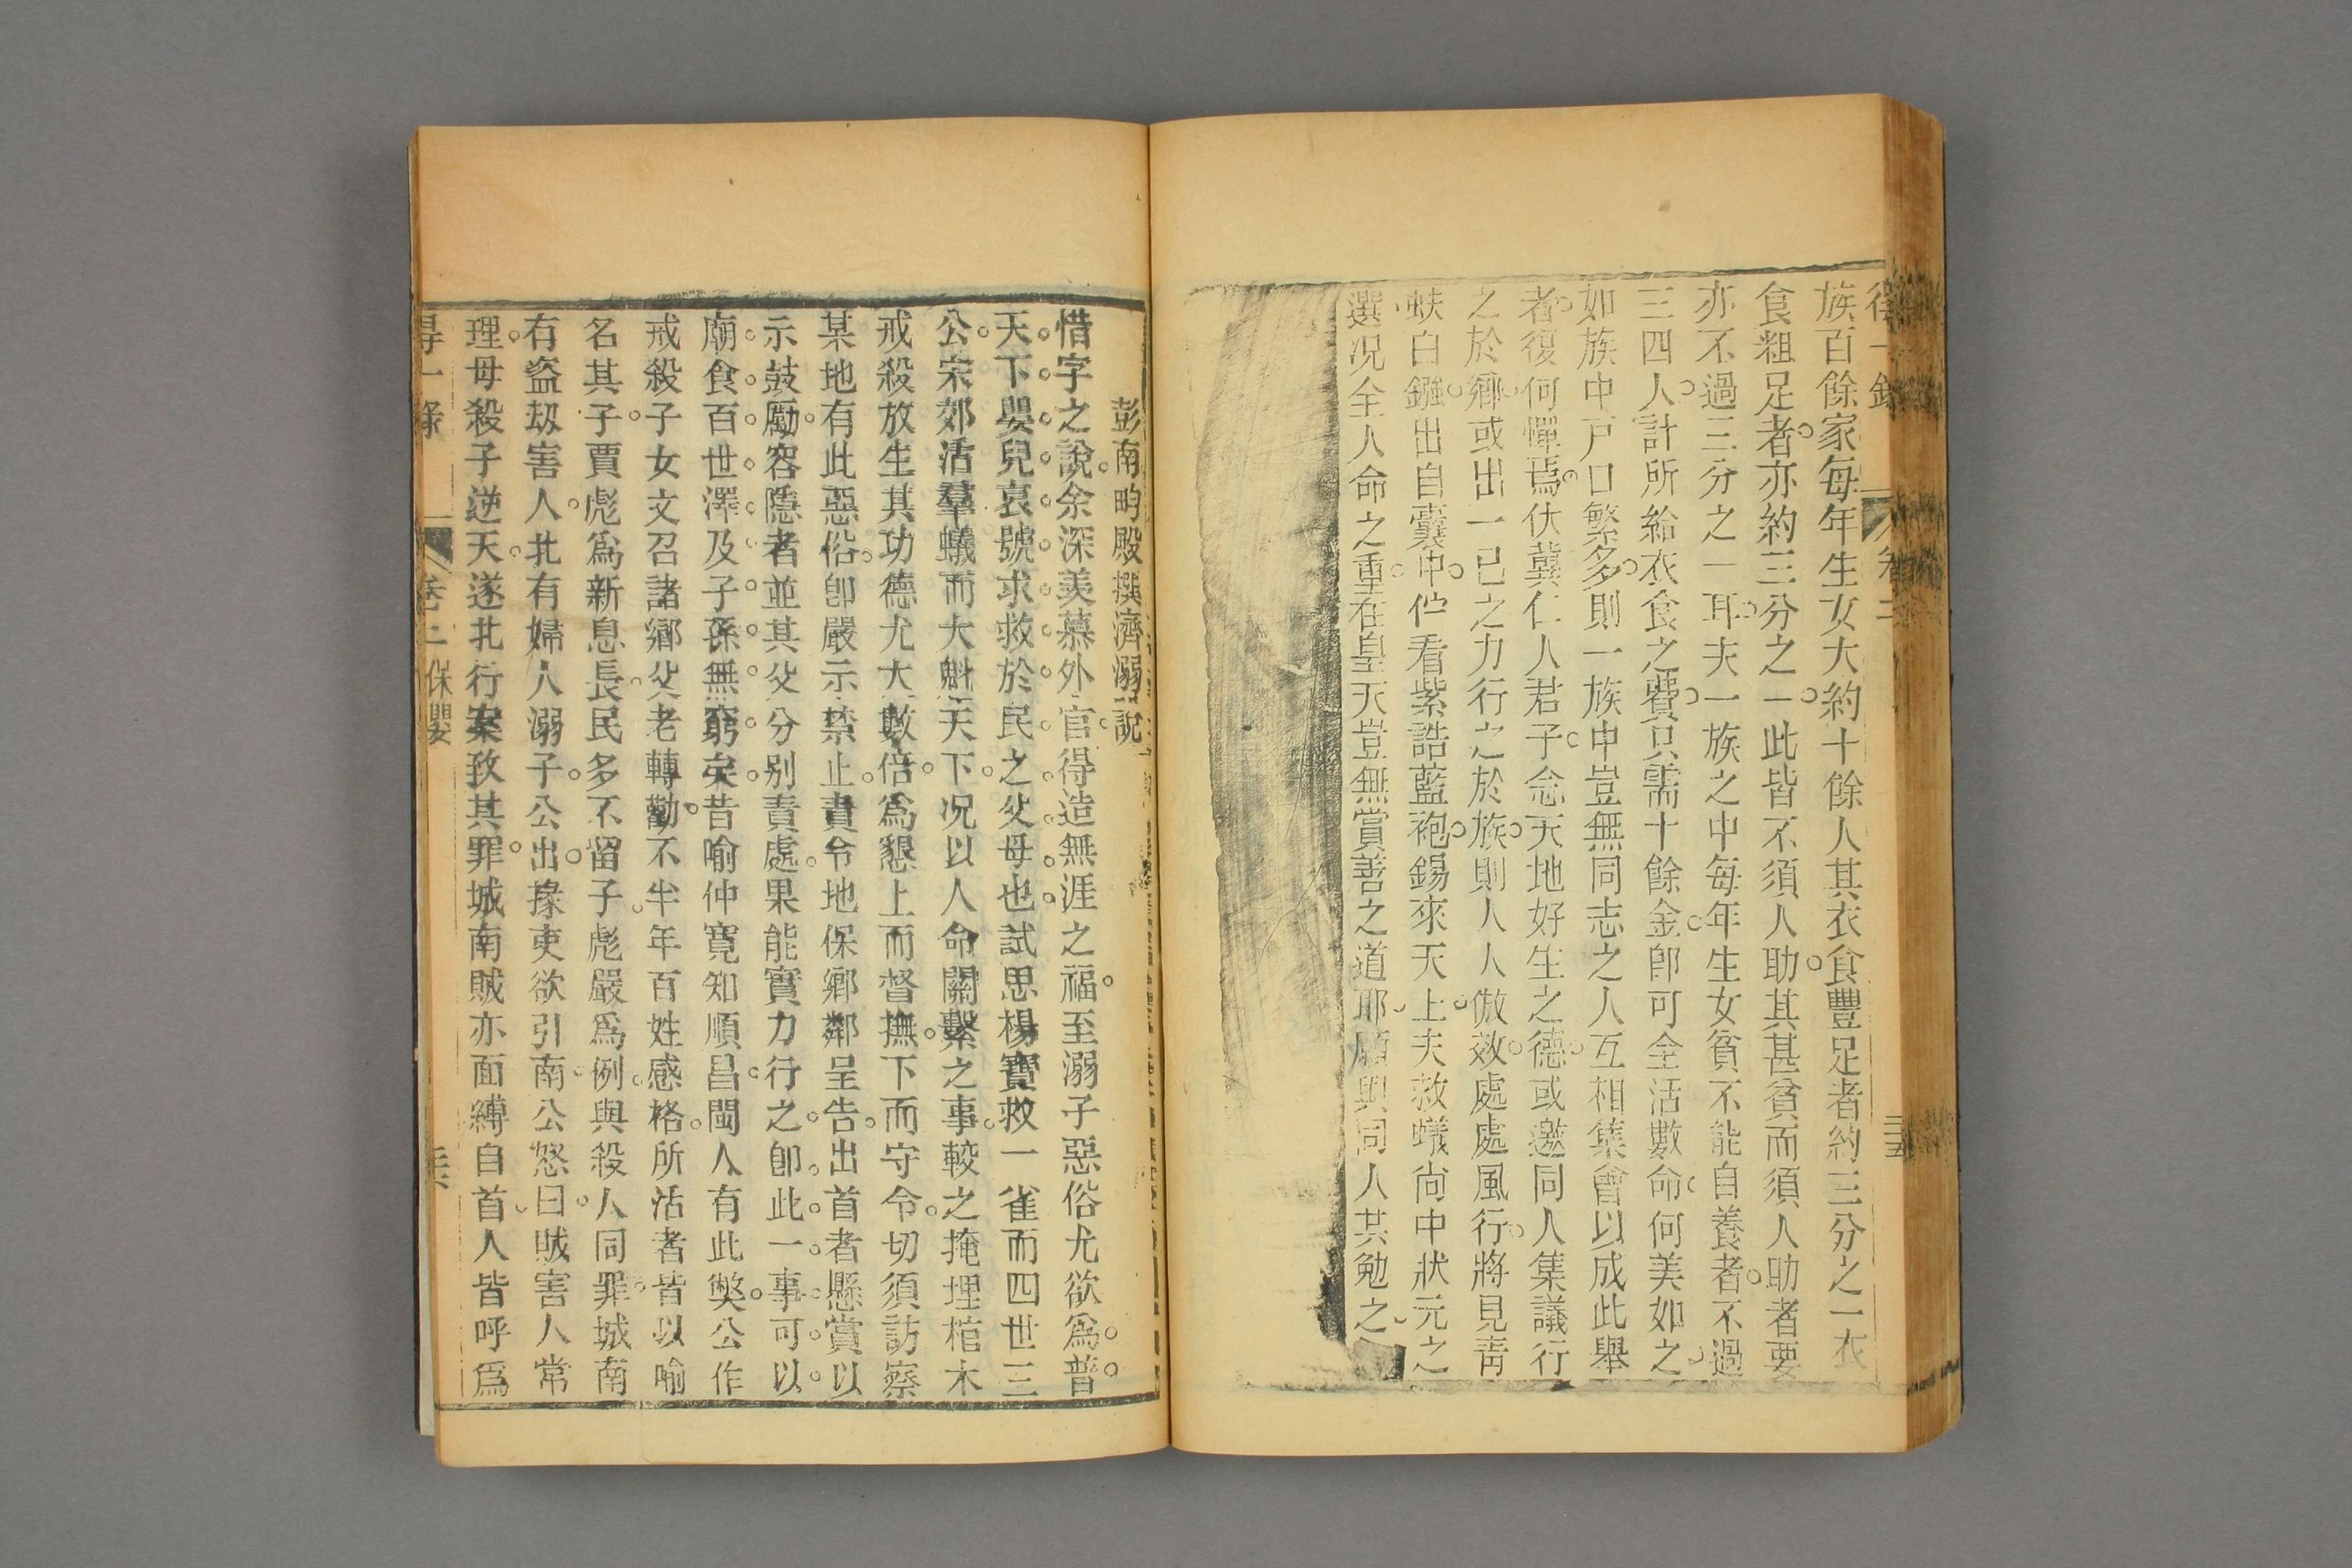 得一錄
卷二
三五
族百餘家每年生女大約十餘人其衣食豐足者約三分之一衣
食粗足者亦約三分之一此皆不須人助其甚貧而須人助者要
亦不過三分之一耳夫一族之中每年生女貧不能自養者不過
三四人計所給衣食之費只需十餘金卽可全活數命何美如之
如族中戸口繁多則一族中豈無同志之人互相集會以成此舉
者復何憚焉伏冀仁人君子念天地好生之德或邀同人集議行
之於鄉或出一己之力行之於族則人人倣效處處風行將見靑
蚨白鏹出自囊中伫看紫誥藍袍錫來天上夫救蟻尙中狀元之
選况全人命之重在皇天豈無賞善之道耶願與同人其勉之
彭南畇殿撰濟溺說
惜字之說余深羙慕外官得造無涯之福至溺子惡俗尤欲爲普
天下嬰兒哀號求救於民之父母也試思楊寶救一雀而四世三
公宋郊活羣蟻而大魁天下况以人命關繫之事較之掩埋棺木
戒殺放生其功德尤大數倍爲懇上而督撫下而守令切須訪察
某地有此惡俗卽嚴示禁止責令地保鄉鄰呈告出首者懸賞以
示鼓勵容隱者並其父分别責處果能實力行之卽此一事可以
廟食百世澤及子孫無窮矣昔喻仲寬知順昌閩人有此獘公作
戒殺子女文召諸鄉父老轉勸不半年百姓感格所活者皆以喻
名其子賈彪爲新息長民多不留子彪嚴爲例與殺人同罪城南
有盜刼害人北有婦人溺子公出掾吏欲引南公怒曰賊害人常
理母殺子逆天遂北行案致其罪城南賊亦面縛自首人皆呼爲
得一錄
卷二 保嬰
三六